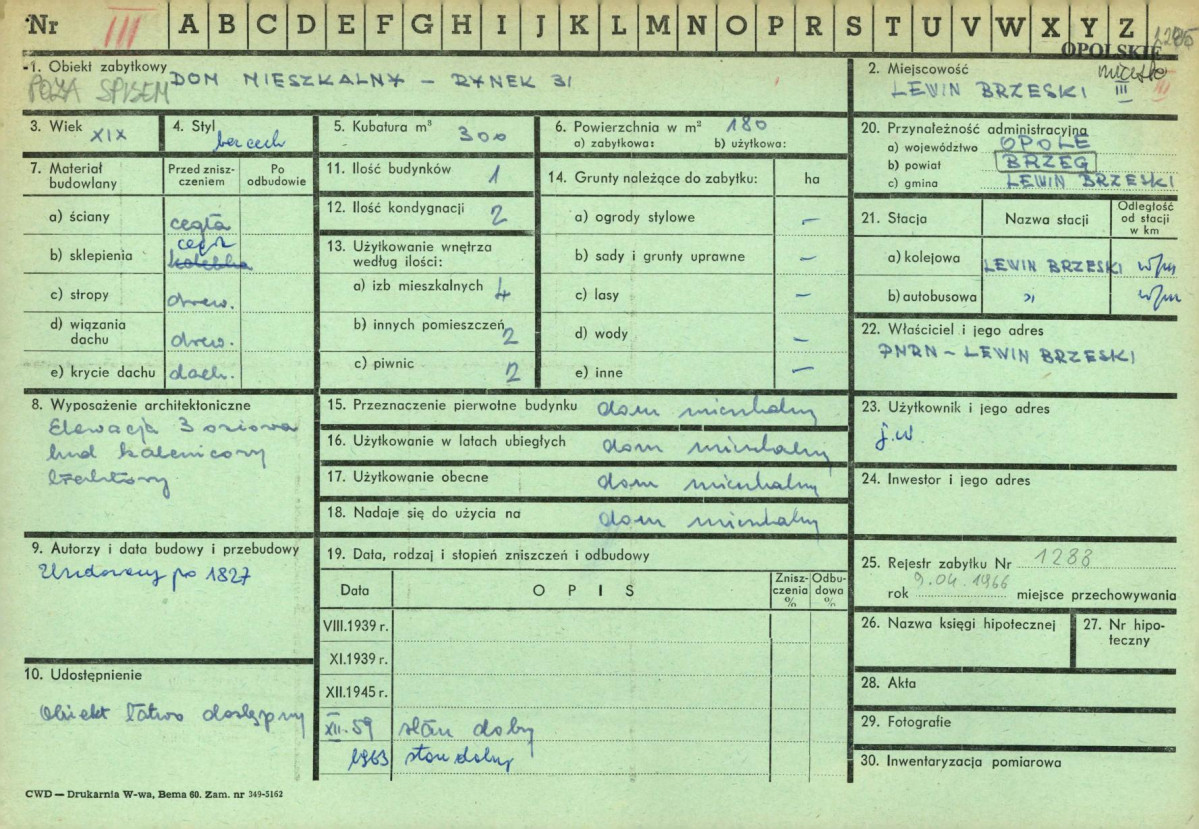 Nr III A B C D E F G H I J K L M N O P R S T U V W X Y Z 1285
OPOLSKIE
1. Obiekt zabytkowy DOM MIESZKALNY – RYNEK 31
POZA SPISEM
2. Miejscowość miasto
LEWIN BRZESKI III III
3. Wiek XIX
4. Styl bez cech
5. Kubatura m³ 300
6. Powierzchnia w m² 180
a) zabytkowa: b) użytkowa:
20. Przynależność administracyjna
a) województwo OPOLE
b) powiat BRZEG
c) gmina LEWIN BRZESKI
7. Materiał budowlany
Przed zniszczeniem
Po odbudowie
a) ściany cegła
b) sklepienia cegł kolebka
c) stropy drew.
d) wiązania dachu drew.
e) krycie dachu dach.
11. Ilość budynków 1
12. Ilość kondygnacji 2
13. Użytkowanie wnętrza
według ilości:
a) izb mieszkalnych 4
b) innych pomieszczeń 2
c) piwnic 2
14. Grunty należące do zabytku: ha
a) ogrody stylowe –
b) sady i grunty uprawne –
c) lasy –
d) wody –
e) inne –
21. Stacja
Nazwa stacji
Odległość od stacji w km
a) kolejowa LEWIN BRZESKI
b) autobusowa "
22. Właściciel i jego adres
PMRN – LEWIN BRZESKI
8. Wyposażenie architektoniczne
Elewacja 3 osiowa
bud kalenicowy
traktowy
15. Przeznaczenie pierwotne budynku dom mieszkalny
16. Użytkowanie w latach ubiegłych dom mieszkalny
17. Użytkowanie obecne dom mieszkalny
18. Nadaje się do użycia na dom mieszkalny
23. Użytkownik i jego adres
j.w.
24. Inwestor i jego adres
9. Autorzy i data budowy i przebudowy
po 1827
19. Data, rodzaj i stopień zniszczeń i odbudowy
Data
OPIS
Zniszczenia %
Odbudowa %
VIII.1939 r.
XI.1939 r.
XII.1945 r.
XII.59 stan dobry
1963 stan dobry
25. Rejestr zabytku Nr 1288
9.04.1966
rok miejsce przechowywania
26. Nazwa księgi hipotecznej
27. Nr hipoteczny
10. Udostępnienie
Obiekt łatwo dostępny
28. Akta
29. Fotografie
30. Inwentaryzacja pomiarowa
CWD — Drukarnia W-wa, Bema 60. Zam. nr 349-5162